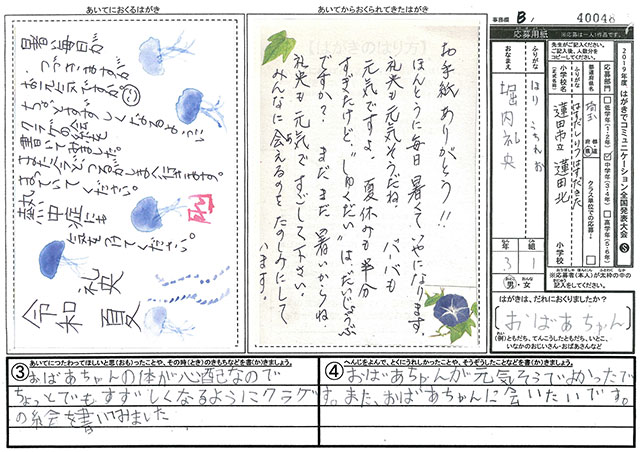 あいてにおくるはがき
暑い毎日が
つづきますが
お元気ですか。
ちょっとですずしくなるように
クラゲの絵を
書いてみました。
またえんどうるがしまくに行きます。
まっていてください。
熱中症にも
気をつけてください。
令和 夏
礼央
あいてからおくられてきたはがき
【はがきのはり方】
お手紙ありがとう!!
ほんとうに毎日暑くていやになります。
礼央も元気そうだね。バーバも
元気ですよ。夏休みも半分
すぎたけど、"しゅくだい"は、だいじょうぶ
ですか?まだまだ暑いからね
礼央も元気ですごして下さい。
みんなに会えるのをたのしみにして
います。
事務欄 B
40046
応募用紙
※応募は一人1作品です。
先生がご記入ください。
2019年度 はがきでコミュニケーション全国発表大会 S
応募部門
低学年(1・2年)
中学年(3・4年)
高学年(5・6年)
都道府県名
埼玉
都 道 府 県
クラス単位での応募
ふりがな
はすだしりつはすだきた
小学校名
(正式名称)
蓮田市立 蓮田北
小学校
ふりがな
ほりうちれお
おなまえ
堀内礼央
年 3
組 1
男・女
※応募者(本人)が太枠の中の記入をしてください。
はがきは、だれにおくりましたか?
おばあちゃん
(例)ともだち、てんこうしたともだち、いとこ、
いなかのおじいさん・おばあさんなど
③ あいてにつたわってほしいと思(おも)ったことや、その時(とき)のきもちなどを書(か)きましょう。
おばあちゃんの体が心配なので
ちょっとでもすずしくなるようにクラゲ
の絵を書いてみました
④ へんじをよんで、とくにうれしかったことや、そうぞうしたことなどを書(か)きましょう。
おばあちゃんが元気そうでよかったで
す。また、おばあちゃんに会いたいです。